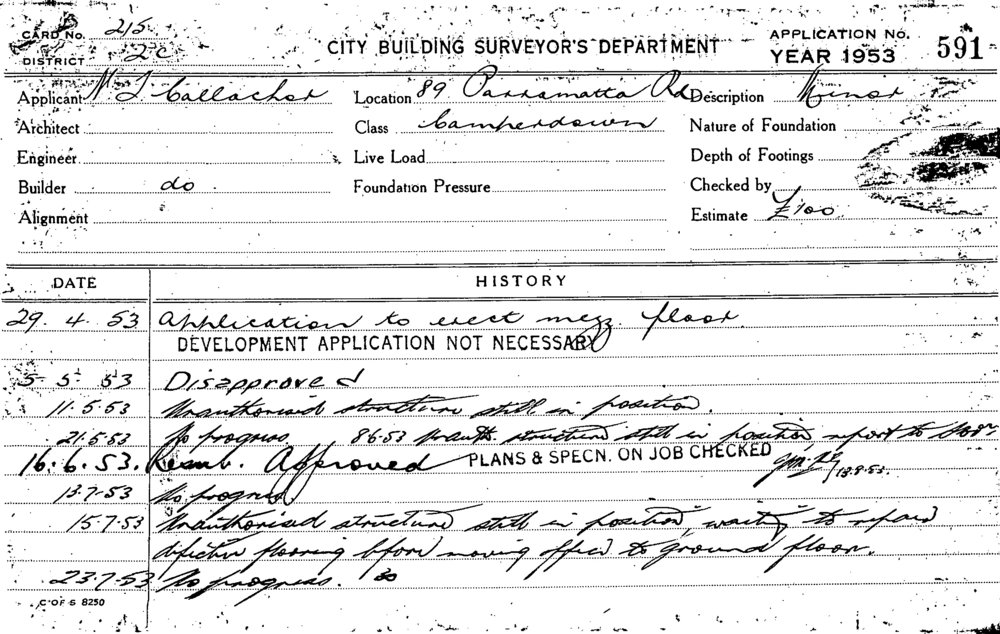 CARD No. 215
DISTRICT 2C
CITY BUILDING SURVEYOR'S DEPARTMENT
APPLICATION No. 591
YEAR 1953
Applicant N J Gallacher Location 89 Parramatta Rd Description Minor
Architect Class Camperdown Nature of Foundation
Engineer Live Load Depth of Footings
Builder do Foundation Pressure Checked by
Alignment Estimate £100
DATE HISTORY
29. 4. 53 Application to erect mezz. floor
DEVELOPMENT APPLICATION NOT NECESSARY
5-5-53 Disapproved
11.5.53 Unauthorised structure still in position.
21.5.53 No progress. 8.6.53 Unauth. structure still in position report to
16.6.53. Resub. Approved PLANS & SPECN. ON JOB CHECKED 13.7.53.
13.7.53 No progress
15.7.53 Unauthorised structure still in position, waiting to repair
defective flooring before moving office to ground floor.
23.7.53 No progress.
C OF S 8250